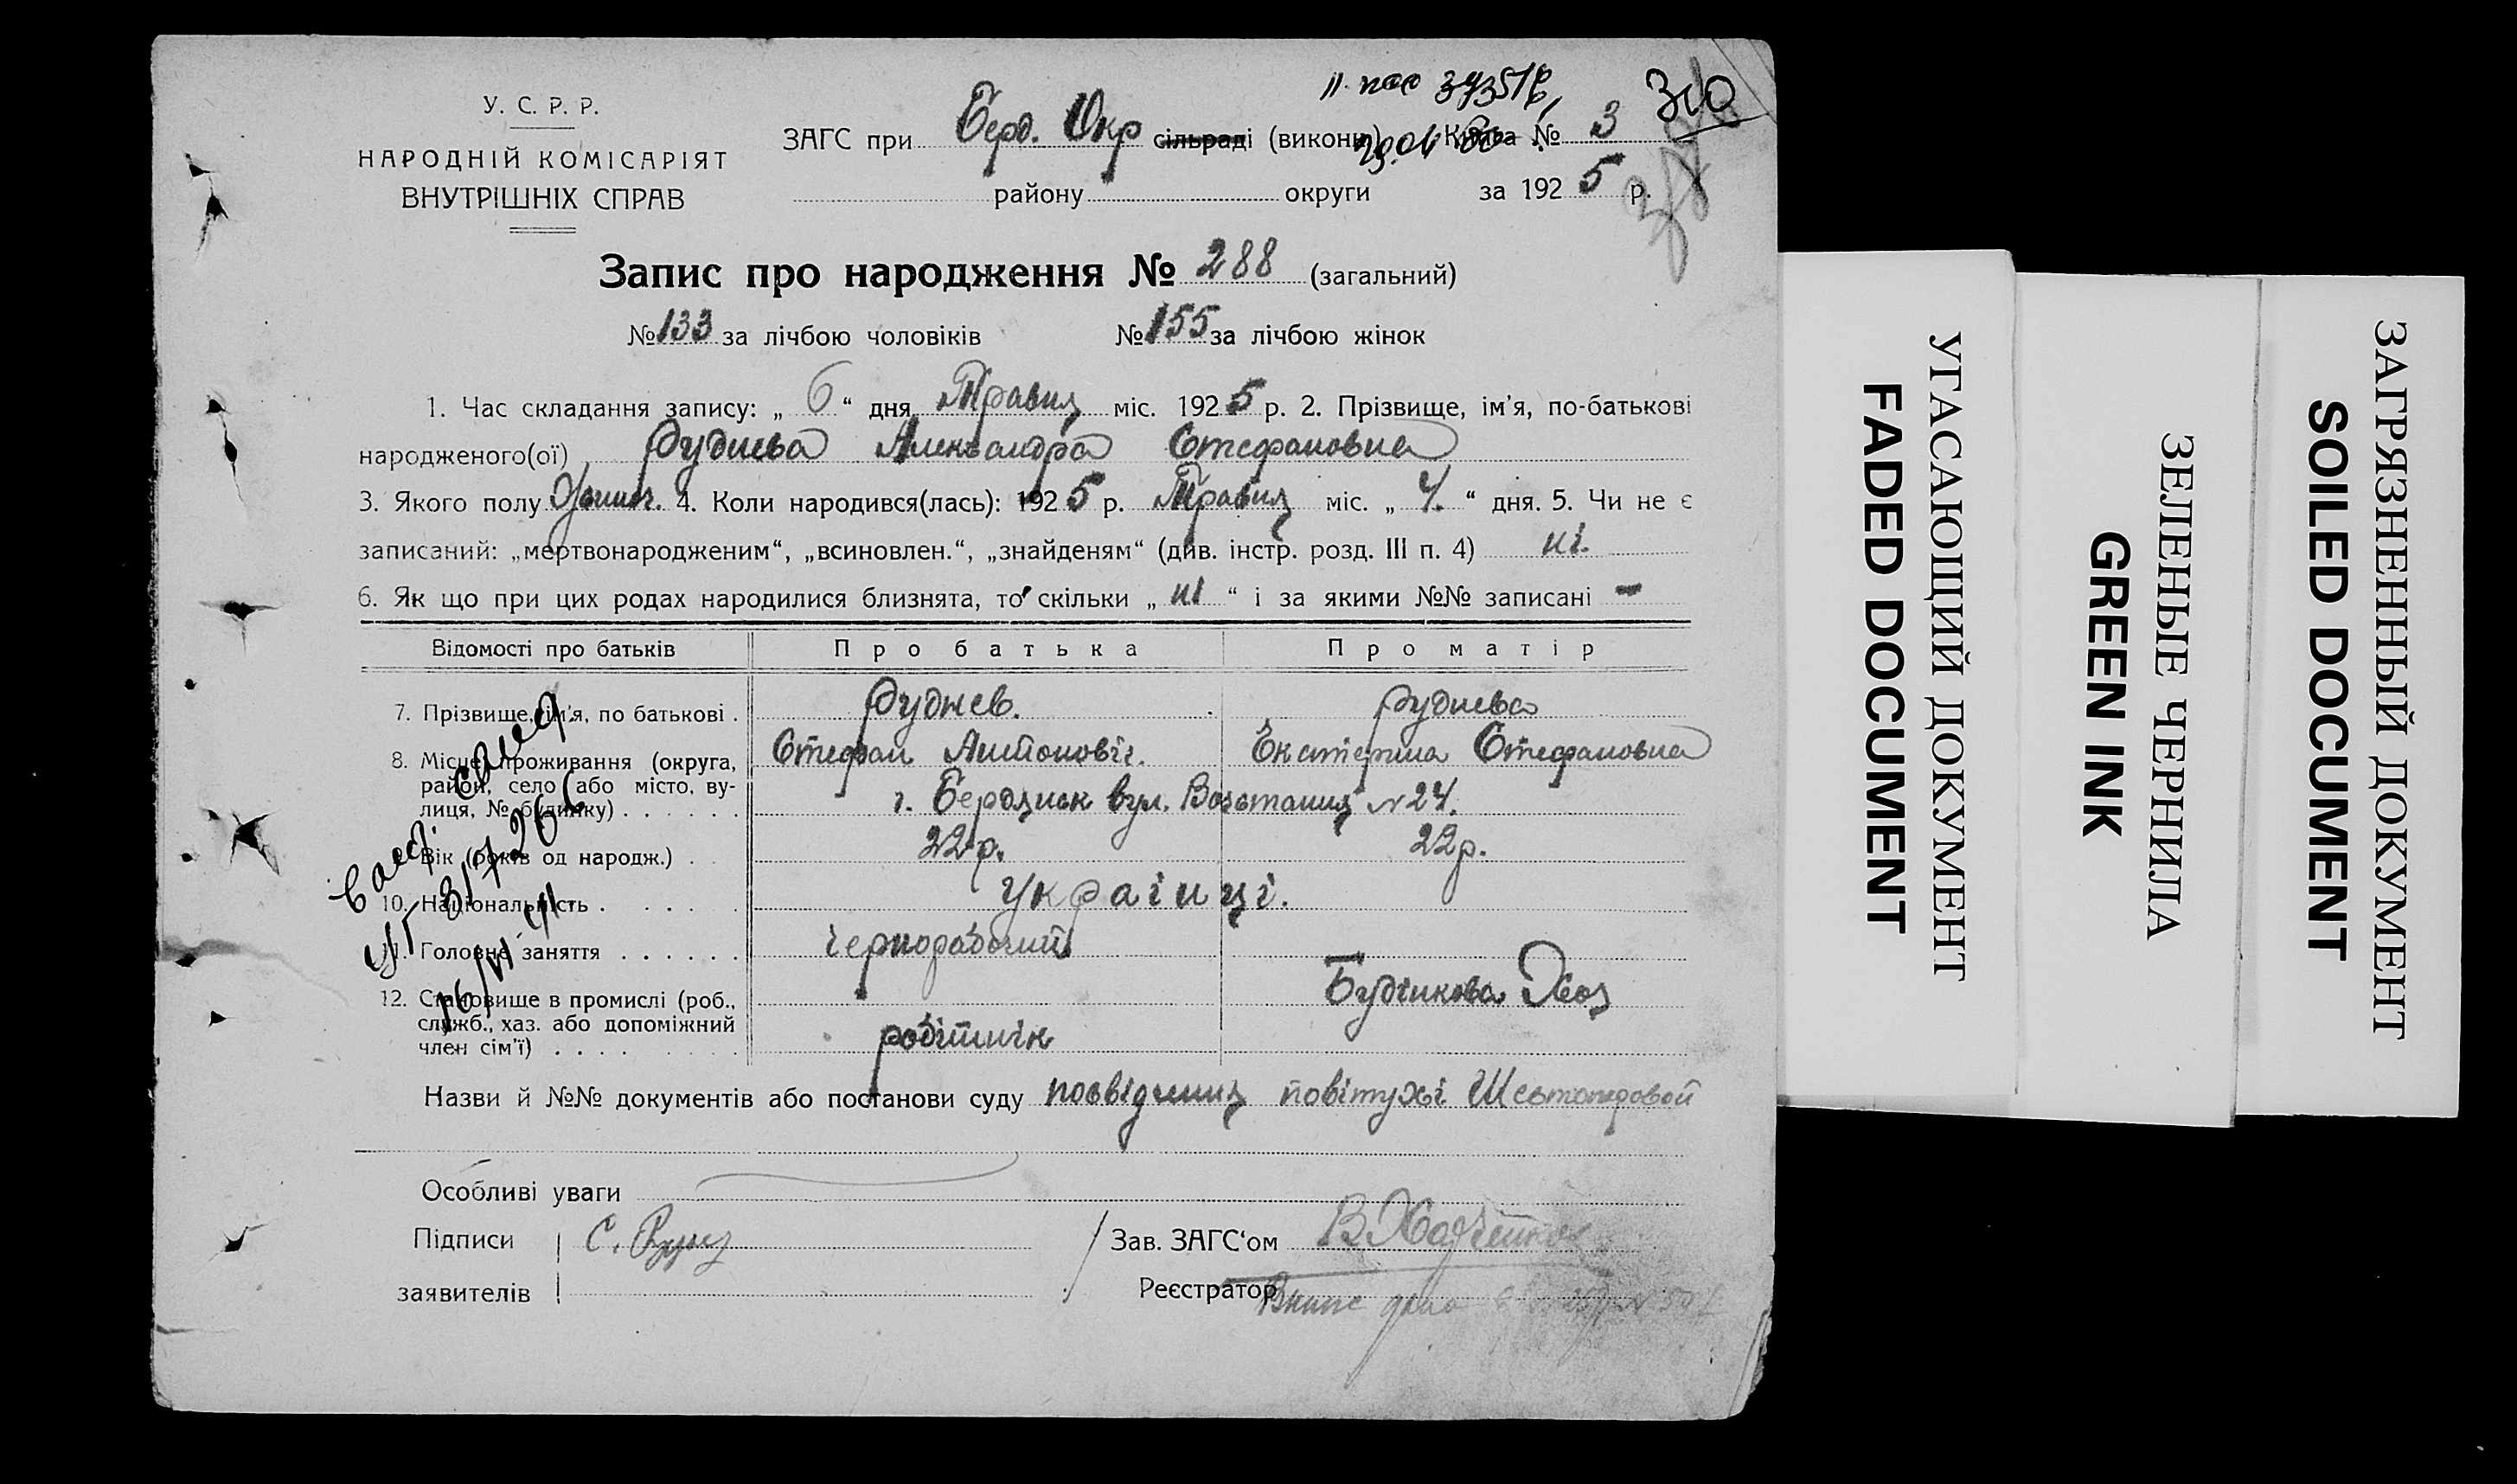 У. С. Р. Р.
НАРОДНІЙ КОМІСАРІЯТ
ВНУТРІШНІХ СПРАВ
ЗАГС при Берд. Окр сільраді (викон Книга № 3
310
району округи за 1925 р.
Запис про народження № 288 (загальний)
№ 133 за лічбою чоловіків № 155 за лічбою жінок
1. Час складання запису: „ 6 “ дня Травня міс. 1925 р. 2. Прізвище, ім'я, по-батькові
народженого(ої) Руднєва Александра Стефановна
3. Якого полу Жіноч. 4. Коли народився(лась): 1925 р. Травня міс. „ 4. “ дня. 5. Чи не є
записаний: „мертвонародженим“, „всиновлен.“, „знайденям“ (див. інстр. розд. III п. 4) ні.
6. Як що при цих родах народилися близнята, то скільки „ ні “ і за якими №№ записані —
Відомості про батьків Про батька Про матір
7. Прізвище, ім'я, по батькові . Руднєв. Руднєва
Стефан Антонович. Екатерина Стефановна
8. Місце проживання (округа, район, село або місто, вулиця, № будинку) . . . . . .
г. Бердянск вул. Возстания № 24.
9. Вік (років од народж.) . 22 р. 22 р.
10. Національність . . . . Українці.
11. Головне заняття . . . . . . Чернорабочий
12. Становище в промислі (роб., служб., хаз. або допоміжний член сім'ї) . . . .
робітник
Назви й №№ документів або постанови суду посвідчення повітухі Шестопаловой
Особливі уваги
Підписи С. Зав. ЗАГС'ом
заявителів Реєстратор
УГАСАЮЩИЙ ДОКУМЕНТ
FADED DOCUMENT
ЗЕЛЕНЫЕ ЧЕРНИЛА
GREEN INK
ЗАГРЯЗНЕННЫЙ ДОКУМЕНТ
SOILED DOCUMENT